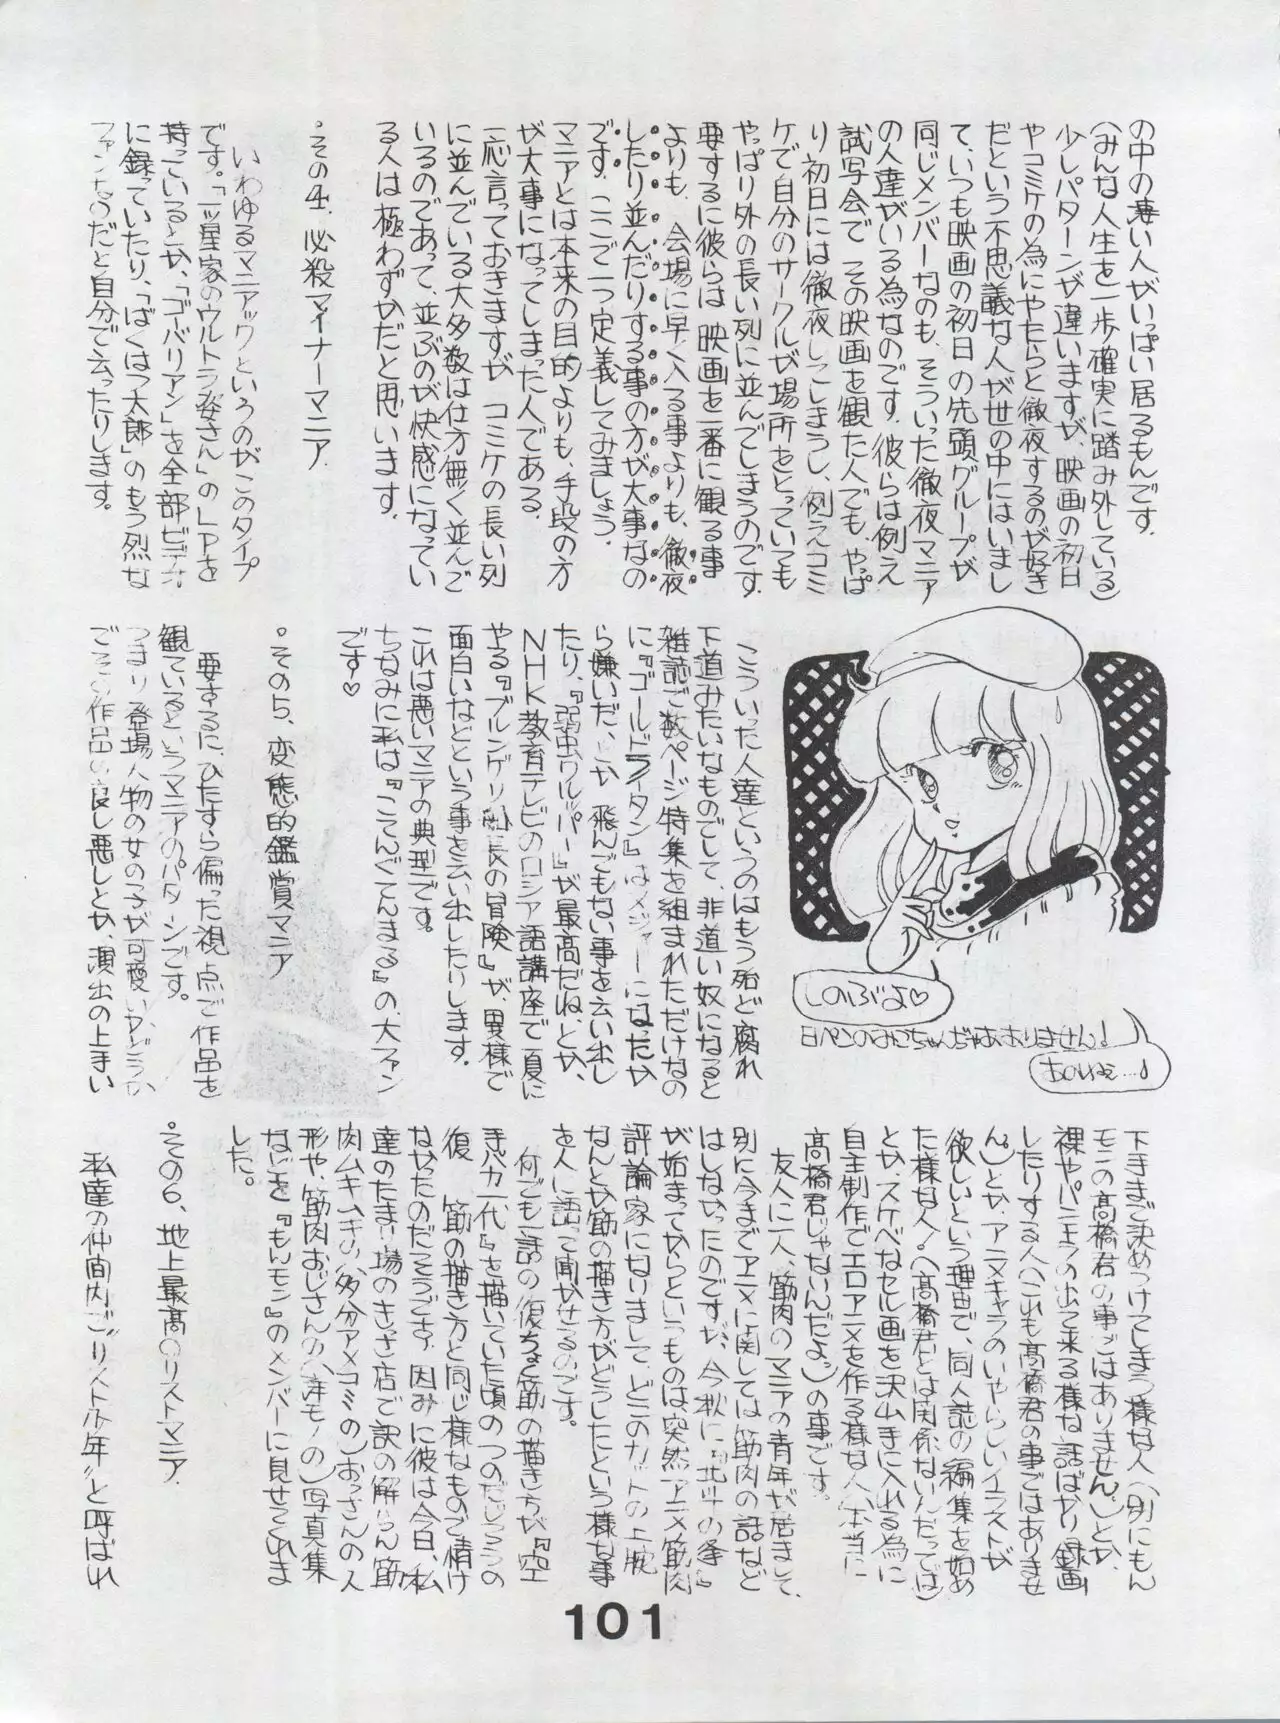 の中の凄い人がいっぱい居るもんです。
(みんな人生を一歩確実に踏み外している)
少しパターンが違いますが、映画の初日
やコミケの為にやたらと徹夜するのが好き
だという不思議な人が世の中にはいまし
て、いつも映画の初日の先頭グループが
同じメンバーなのも、そういった徹夜マニア
の人達がいる為なのです。彼らは例え
試写会で その映画を観た人でも、やっぱ
り初日には徹夜してしまうし、例えコミ
ケで自分のサークルが場所をとっていても
やっぱり外の長い列に並んでしまうのです。
要するに彼らは 映画を一番に観る事
よりも、会場に早く入る事よりも、徹夜
したり並んだりする事の方が大事なの
です。ここで一つ定義してみましょう。
マニアとは本来の目的よりも、手段の方
が大事になってしまった人である。
一応言っておきますが コミケの長い列
に並んでいる大多数は仕方無く並んで
いるのであって、並ぶのが快感になってい
る人は極わずかだと思います。
。その4、必殺マイナーマニア
いわゆるマニアックというのがこのタイプ
です。「一ツ星家のウルトラ婆さん」のLPを
持っているとか、「ゴーバリアン」を全部ビデオ
に録っていたり、「ばくはつ太郎」のもう烈な
ファンなのだと自分で云ったりします。
こういった人達というのはもう殆ど腐れ
下道みたいなものでして、非道い奴になると
雑誌で数ページ特集を組まれただけなの
に『ゴールドライタン』はメジャーになったか
ら嫌いだ、とか 飛んでもない事を云い出し
たり、『弱虫クルッパー』が最高だね、とか、
NHK教育テレビのロシア語講座で夏に
やる『ブルンゲリ船長の冒険』が、異様で
面白いなどという事を云い出したりします。
これは悪いマニアの典型です。
ちなみに私は『こてんぐてんまる』の、大ファン
です♡
。その5、変態的鑑賞マニア
要するに、ひたすら偏った視点で作品を
観ているというマニアのパターンです。
つまり登場人物の女の子が可愛いかどうか
でその作品の良し悪しとか、演出の上手い
しのぶよ♡
日ペンのみこちゃんぢゃあありません♪
あのねェ…♪
下手まで決めつけてしまう様な人(別にもん
モンの高橋君の事ではありません。)とか、
裸やパンチラの出て来る様な話ばかり録画
したりする人(これも高橋君の事ではありませ
ん。)とか、アニメキャラのいやらしいイラストが
欲しいという理由で、同人誌の編集を始め
た様な人!(高橋君とは関係ないんだってば)
とか、スケベなセル画を沢山手に入れる為に
自主制作でエロアニメを作る様な人(本当に
高橋君じゃないんだよっ)の事です。
友人に一人、筋肉のマニアの青年が居まして、
別に今までアニメに関しては筋肉の話など
はしなかったのですが、今秋に『北斗の拳』
が始まってからというものは突然アニメ筋肉
評論家になりまして、どこのカットの上腕
なんとか筋の描き方がどうしたという様な事
を人に語って聞かせるのです。
何でも一話の復ちょく筋の描き方が『空
手バカ一代』を描いていた頃のつのだじろうの
復 筋の描き方と同じ様なもので情け
なかったのだそうです。因みに彼は今日、私
達のたまり場のきっさ店で訳の解らん筋
肉ムキムキの(多分アメコミの)おっさんの人
形や、筋肉おじさんの(洋モノの)写真集
などを『もんモン』のメンバーに見せてくれま
した。
。その6、地上最高のリストマニア
私達の仲間内で〝リスト少年〟と呼ばれ
101